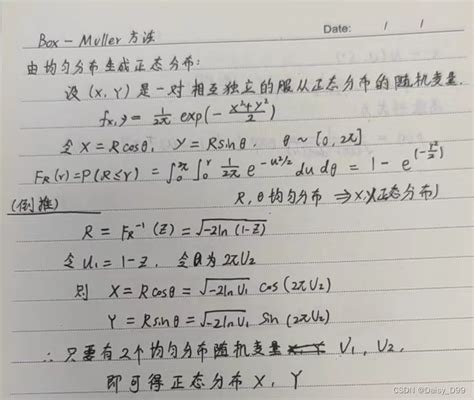 Box - Muller 方法
Date: / /
由均匀分布生成正态分布:
设 (X, Y) 是一对相互独立的服从正态分布的随机变量.
fx,y = 1/2π exp(- x²+y²/2)
令 X = Rcosθ, Y = Rsinθ. θ ~ [0, 2π]
FR(r) = P(R≤r) = ∫₀^2π ∫₀^r 1/2π e^-u²/2 du dθ = 1 - e^(-r²/2)
(倒推) R, θ 均匀分布 ⇒ X, Y 正态分布
R = FR⁻¹(Z) = √-2ln(1-Z)
令 U1 = 1-Z. 令 θ 为 2πU2
则 X = Rcosθ = √-2lnU1 cos(2πU2)
Y = Rsinθ = √-2lnU1 Sin(2πU2)
∴ 只要有2个均匀分布随机变量 U1, U2.
即可得正态分布 X, Y
CSDN @Daisy_D99